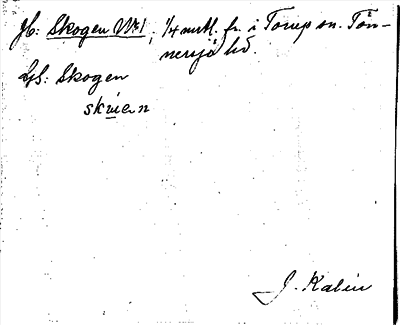 Jb: Skogen No 1, 1/4 mtl. fr. i Torup sn. Tön-
nersjö hd.
Ljs: Skogen
skuen
J. Kalén